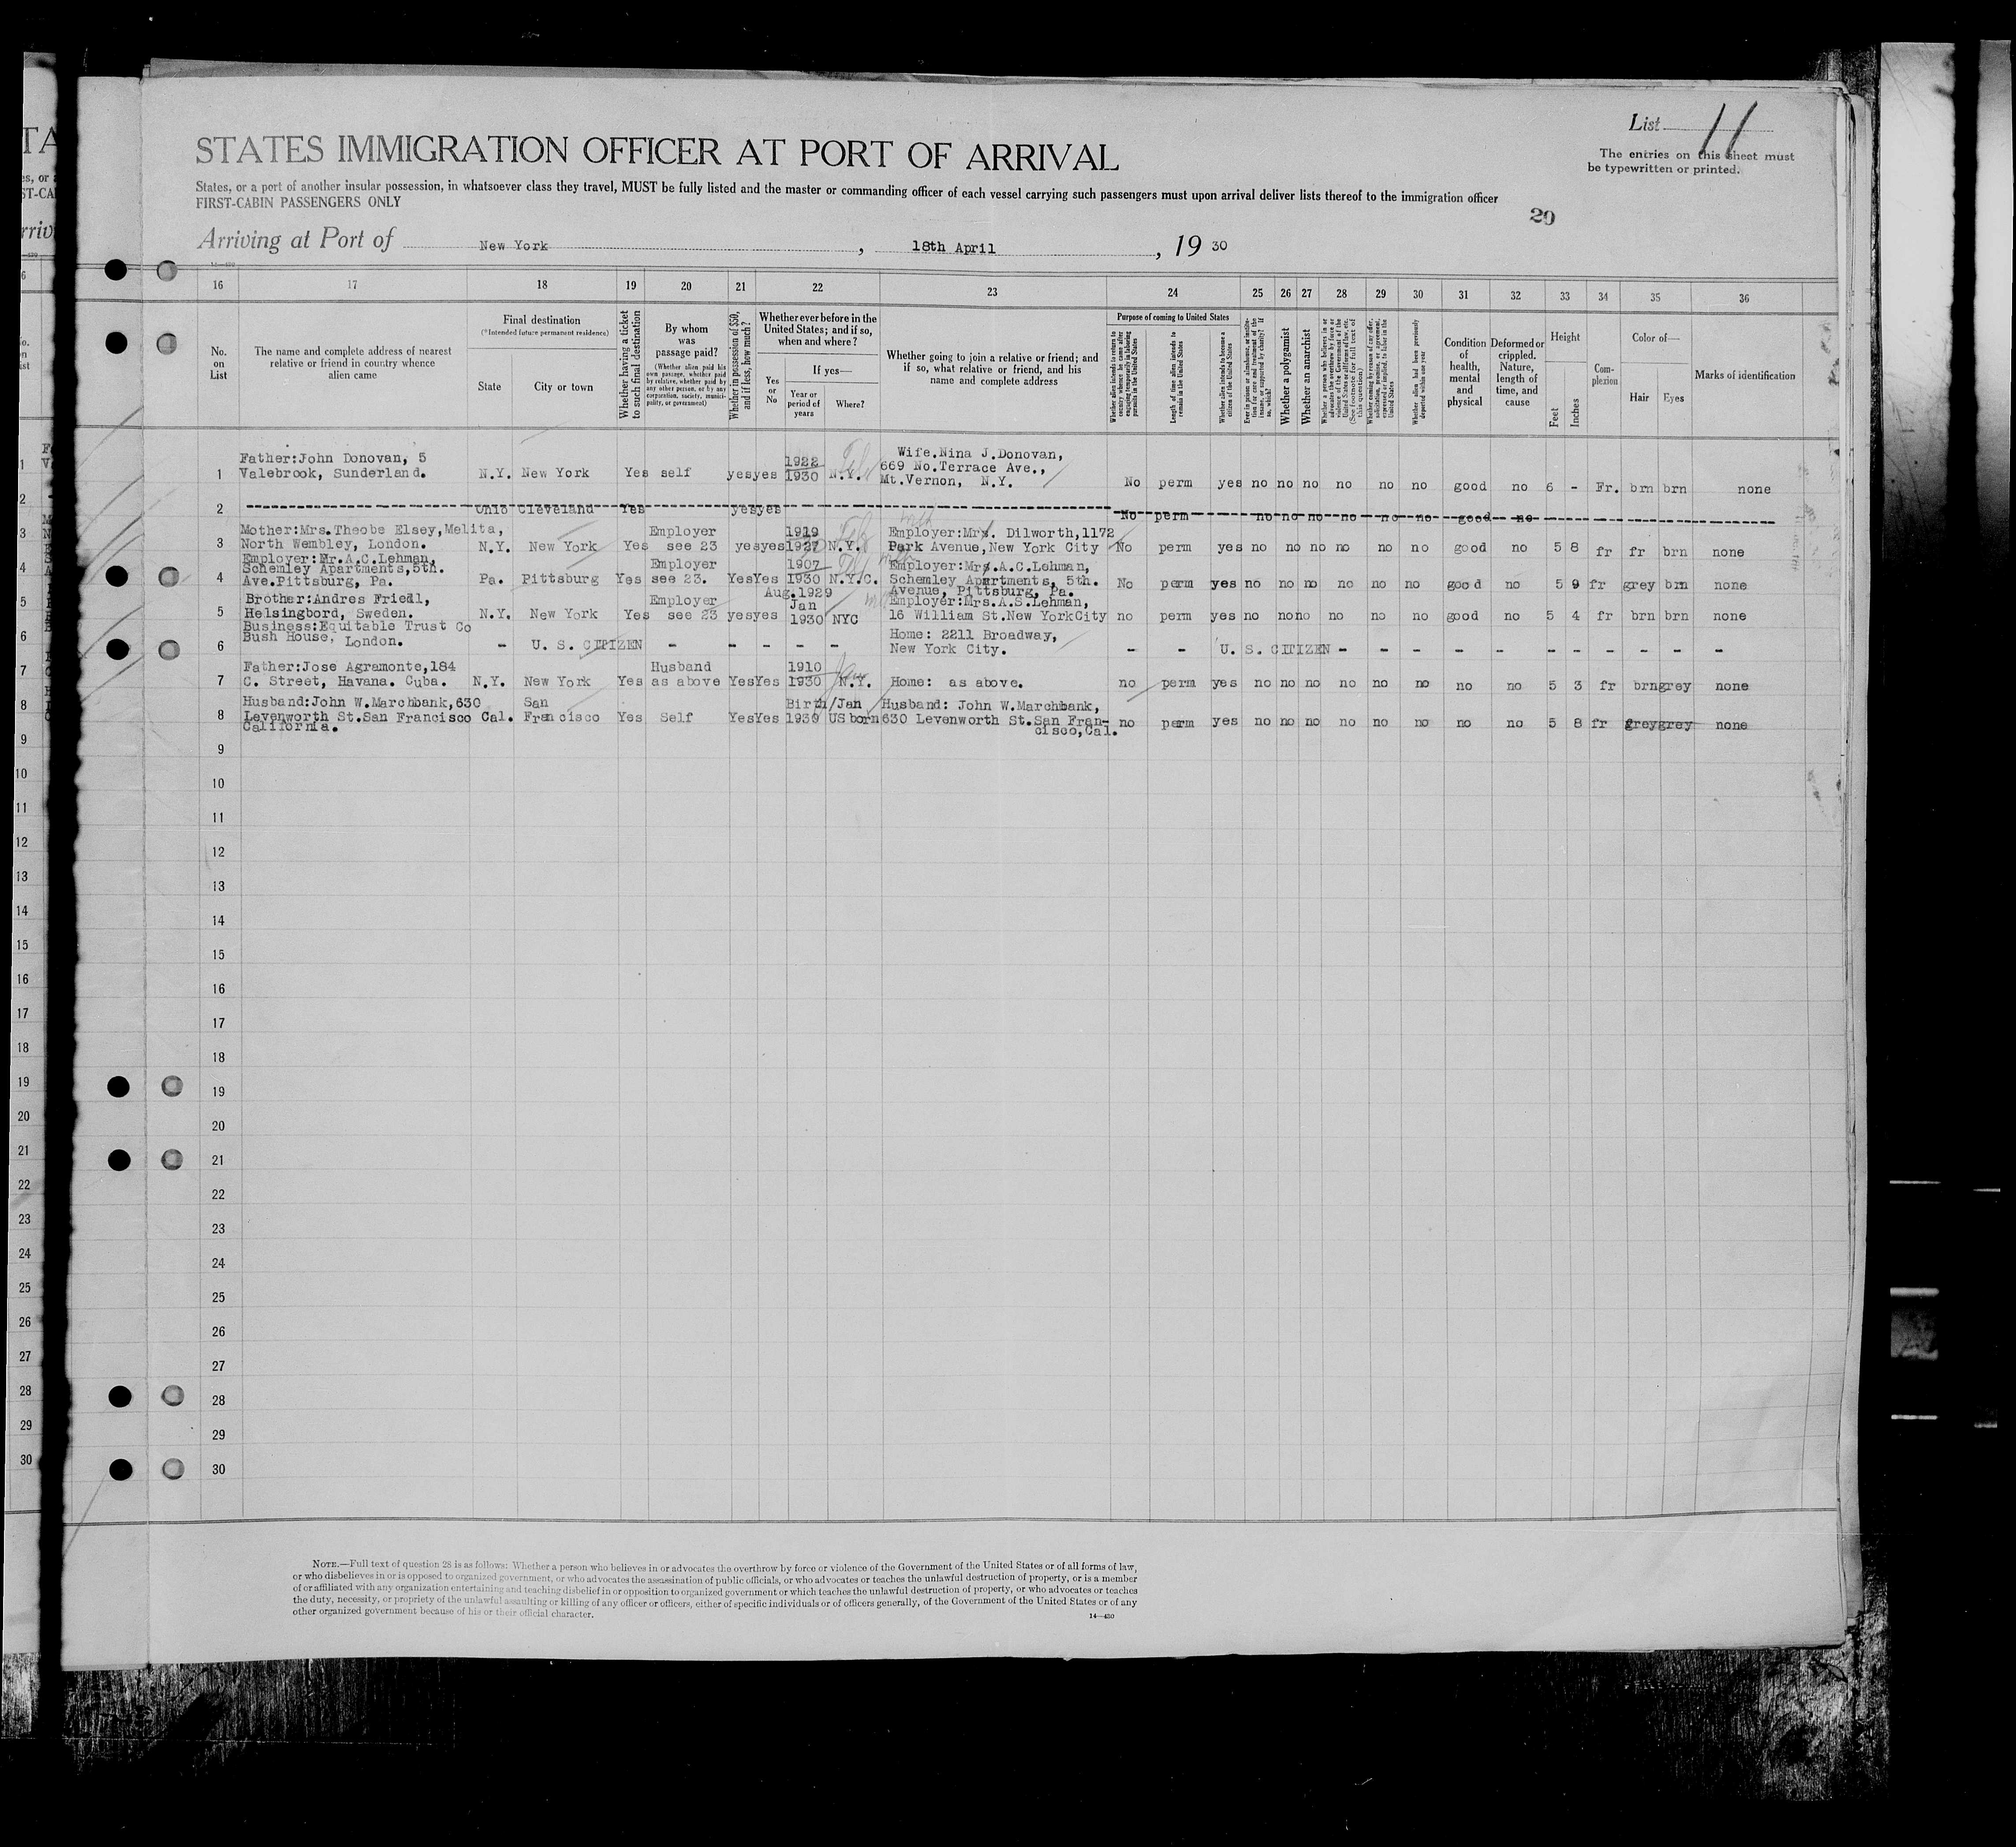 List 11
The entries on this sheet must
be typewritten or printed.
STATES IMMIGRATION OFFICER AT PORT OF ARRIVAL
States, or a port of another insular possession, in whatsoever class they travel, MUST be fully listed and the master or commanding officer of each vessel carrying such passengers must upon arrival deliver lists thereof to the immigration officer
FIRST-CABIN PASSENGERS ONLY
29
Arriving at Port of New York, 18th April, 19 30
16 17 18 19 20 21 22 23 24 25 26 27 28 29 30 31 32 33 34 35 36
No. on List
The name and complete address of nearest relative or friend in country whence alien came
Final destination
(*Intended future permanent residence)
State
City or town
Whether having a ticket to such final destination
By whom was passage paid?
(Whether alien paid his own passage, whether paid by relative, whether paid by any other person, or by any corporation, society, municipality, or government)
Whether in possession of $50, and if less, how much?
Whether ever before in the United States; and if so, when and where?
Yes or No
If yes—
Year or period of years
Where?
Whether going to join a relative or friend; and if so, what relative or friend, and his name and complete address
Purpose of coming to United States
Whether alien intends to return to country whence he came after engaging temporarily in laboring pursuits in the United States
Length of time alien intends to remain in the United States
Whether alien intends to become a citizen of the United States
Whether a polygamist
Whether an anarchist
Whether alien had been previously deported within one year
Condition of health, mental and physical
Deformed or crippled. Nature, length of time, and cause
Height
Feet
Inches
Complexion
Color of—
Hair
Eyes
Marks of identification
Father:John Donovan, 5 Wife.Nina J.Donovan,
1 Valebrook, Sunderland. N.Y. New York Yes self yes yes 1922 1930 N.Y. 669 No.Terrace Ave.,
Mt.Vernon, N.Y. No perm yes no no no no no no good no 6 - Fr. brn brn none
2 Ohio Cleveland Yes yes yes No perm no no no no no no good no
Mother:Mrs.Theobe Elsey,Melita, Employer 1919 Employer:Mrs. Dilworth,1172
3 North Wembley, London. N.Y. New York Yes see 23 yes yes 1927 N.Y. Park Avenue,New York City No perm yes no no no no no no good no 5 8 fr fr brn none
Employer:Mr.A.C.Lehman, Employer 1907 Employer:Mrs.A.C.Lehman,
Schemley Apartments,5th.
4 Ave.Pittsburg, Pa. Pa. Pittsburg Yes see 23. Yes Yes 1930 N.Y.C. Schemley Apartments, 5th. No perm yes no no no no no no good no 5 9 fr grey brn none
Avenue, Pittsburg, Pa.
Brother:Andres Friedl, Employer Aug.1929 Jan Employer:Mrs.A.S.Lehman,
5 Helsingbord, Sweden. N.Y. New York Yes see 23 yes yes 1930 NYC 16 William St.New YorkCity no perm yes no no no no no no good no 5 4 fr brn brn none
Business:Equitable Trust Co Home: 2211 Broadway,
6 Bush House, London. - U. S. CITIZEN - - - - - New York City. - - U. S. CITIZEN - - - - - - - - - - -
Father:Jose Agramonte,184 Husband 1910
7 C. Street, Havana. Cuba. N.Y. New York Yes as above Yes Yes 1930 N.Y. Home: as above. no perm yes no no no no no no no no 5 3 fr brn grey none
Husband:John W.Marchbank,630 San Birth/Jan Husband: John W.Marchbank,
8 Levenworth St.San Francisco Cal. Francisco Yes Self Yes Yes 1930 US born 630 Levenworth St.San Fran-
California. cisco,Cal. no perm yes no no no no no no no no 5 8 fr grey grey none
9
10
11
12
13
14
15
16
17
18
19
20
21
22
23
24
25
26
27
28
29
30
NOTE.—Full text of question 28 is as follows: Whether a person who believes in or advocates the overthrow by force or violence of the Government of the United States or of all forms of law,
or who disbelieves in or is opposed to organized government, or who advocates the assassination of public officials, or who advocates or teaches the unlawful destruction of property, or is a member
of or affiliated with any organization entertaining and teaching disbelief in or opposition to organized government or which teaches the unlawful destruction of property, or who advocates or teaches
the duty, necessity, or propriety of the unlawful assaulting or killing of any officer or officers, either of specific individuals or of officers generally, of the Government of the United States or of any
other organized government because of his or their official character.
14—430